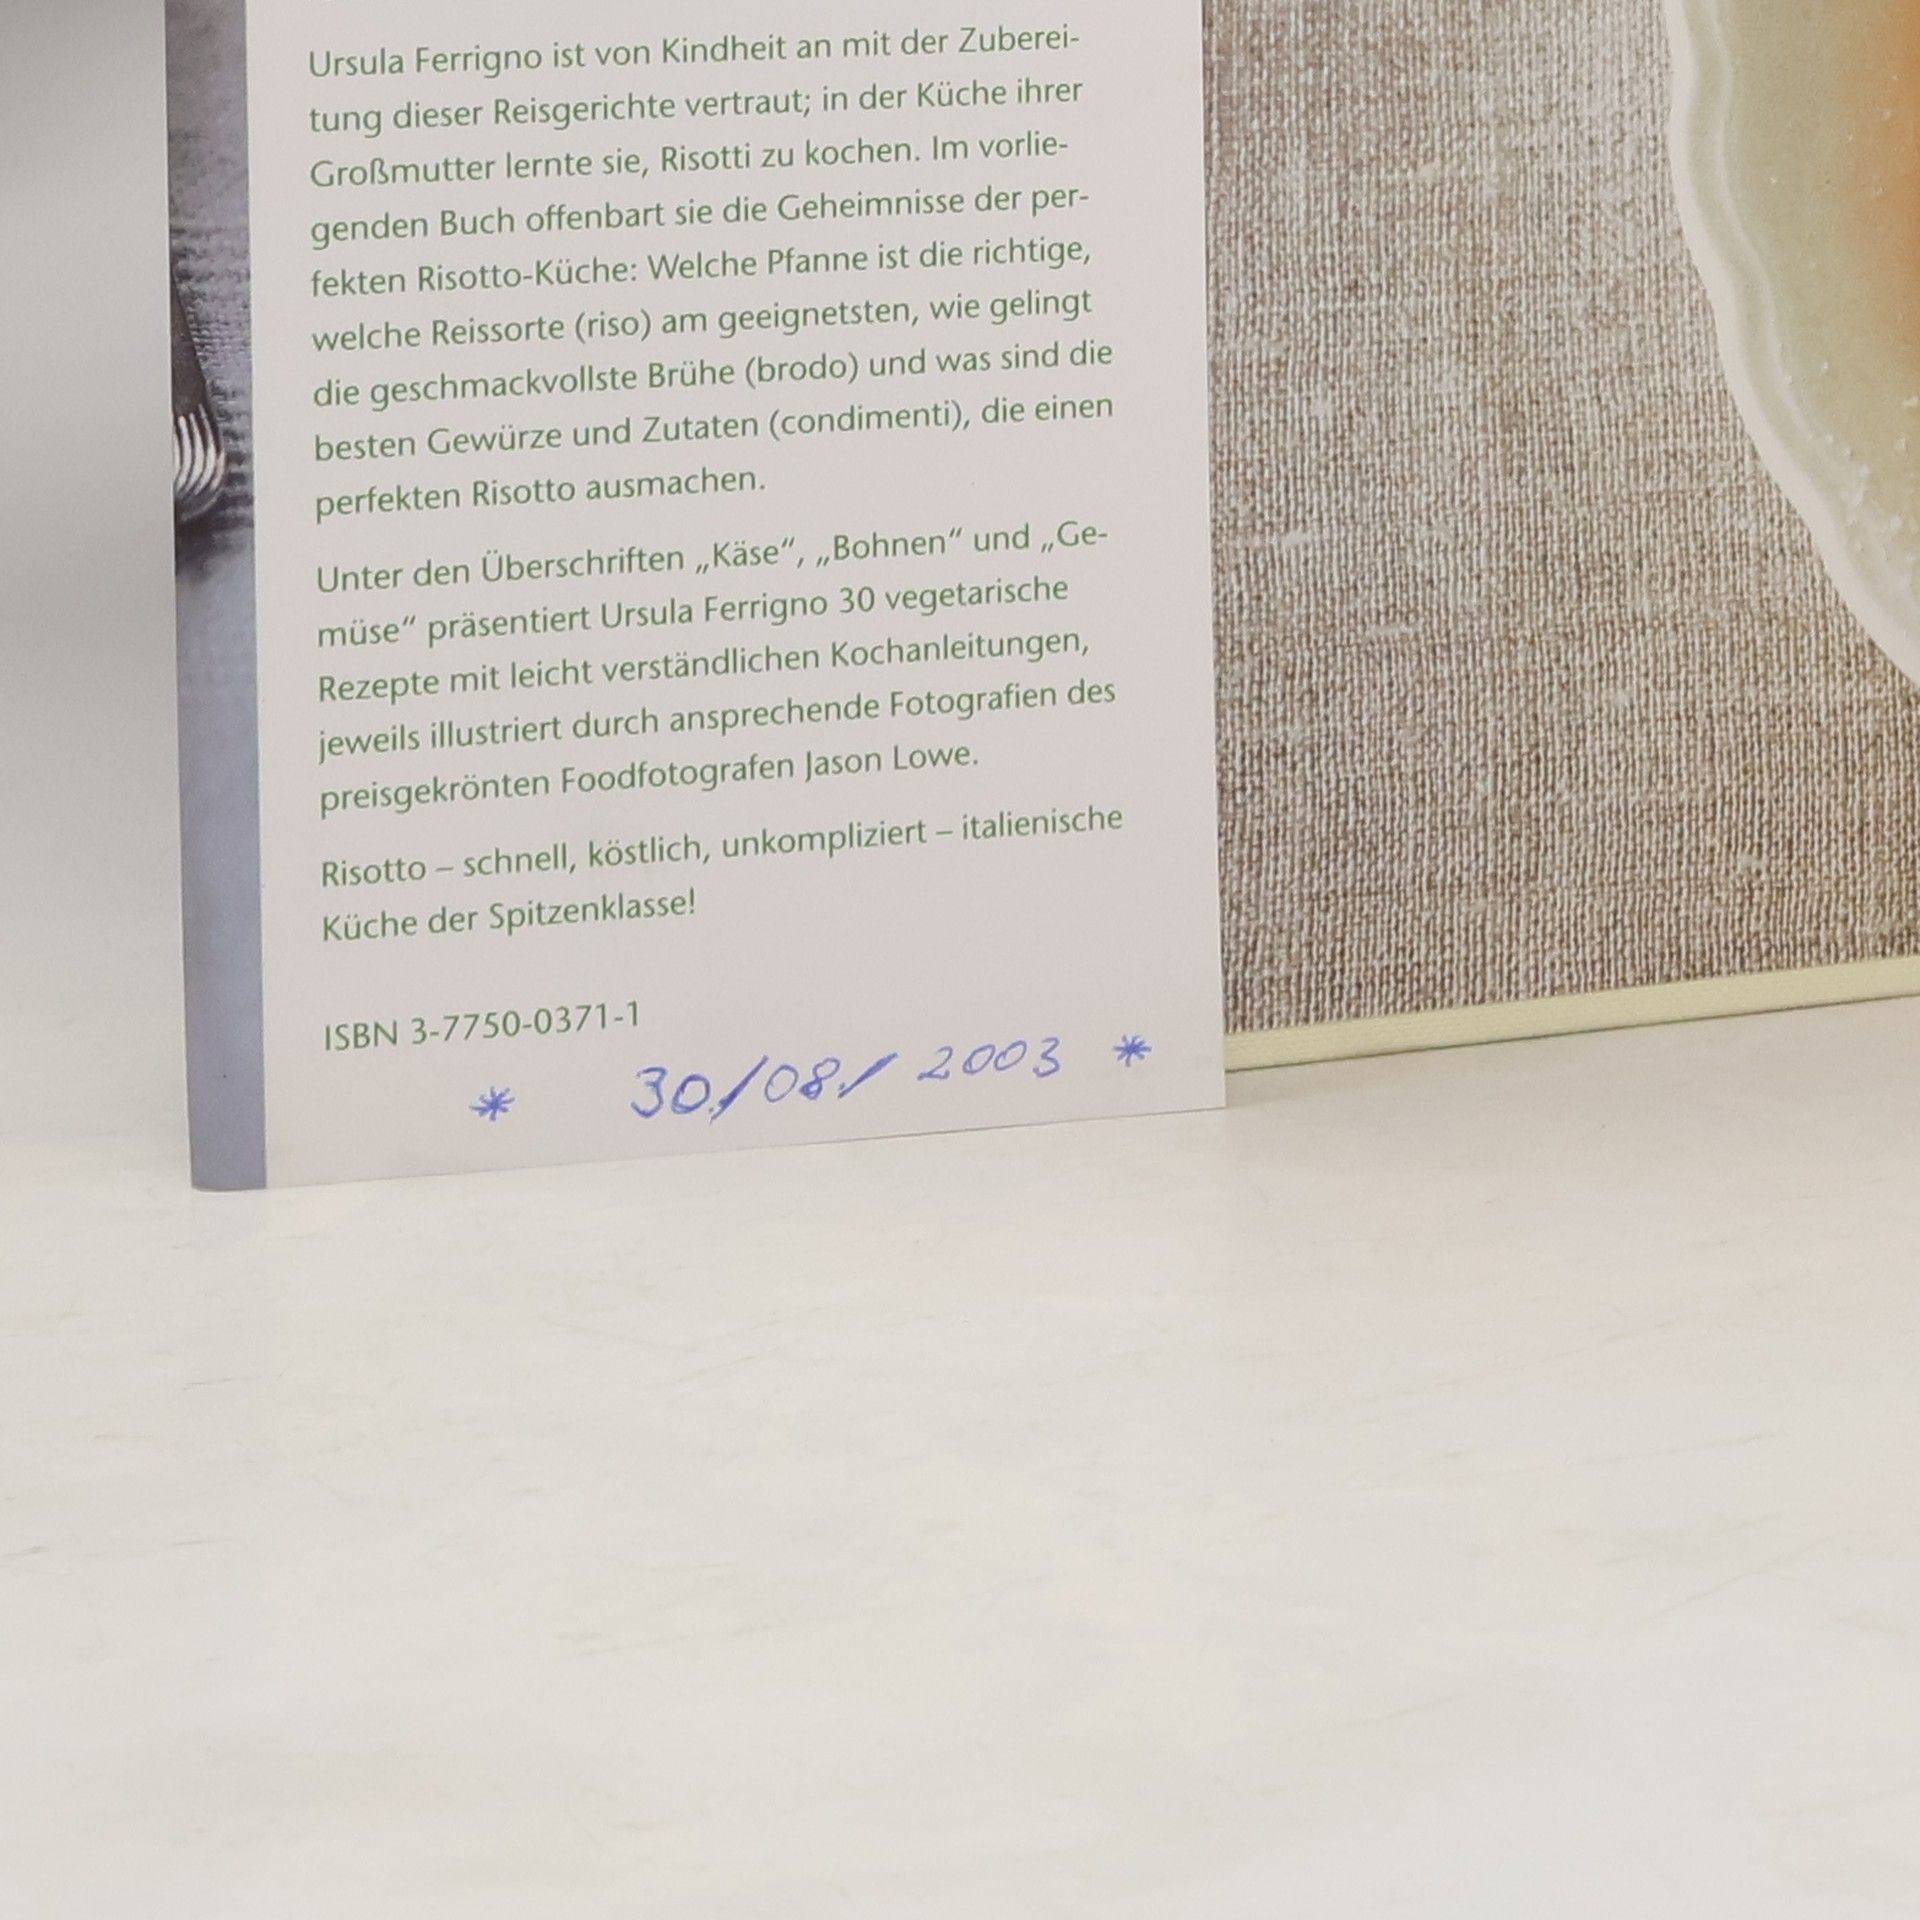 Ursula Ferrigno ist von Kindheit an mit der Zuberei-
tung dieser Reisgerichte vertraut; in der Küche ihrer
Großmutter lernte sie, Risotti zu kochen. Im vorlie-
genden Buch offenbart sie die Geheimnisse der per-
fekten Risotto-Küche: Welche Pfanne ist die richtige,
welche Reissorte (riso) am geeignetsten, wie gelingt
die geschmackvollste Brühe (brodo) und was sind die
besten Gewürze und Zutaten (condimenti), die einen
perfekten Risotto ausmachen.
Unter den Überschriften „Käse“, „Bohnen“ und „Ge-
müse“ präsentiert Ursula Ferrigno 30 vegetarische
Rezepte mit leicht verständlichen Kochanleitungen,
jeweils illustriert durch ansprechende Fotografien des
preisgekrönten Foodfotografen Jason Lowe.
Risotto – schnell, köstlich, unkompliziert – italienische
Küche der Spitzenklasse!
ISBN 3-7750-0371-1
* 30./08./2003 *